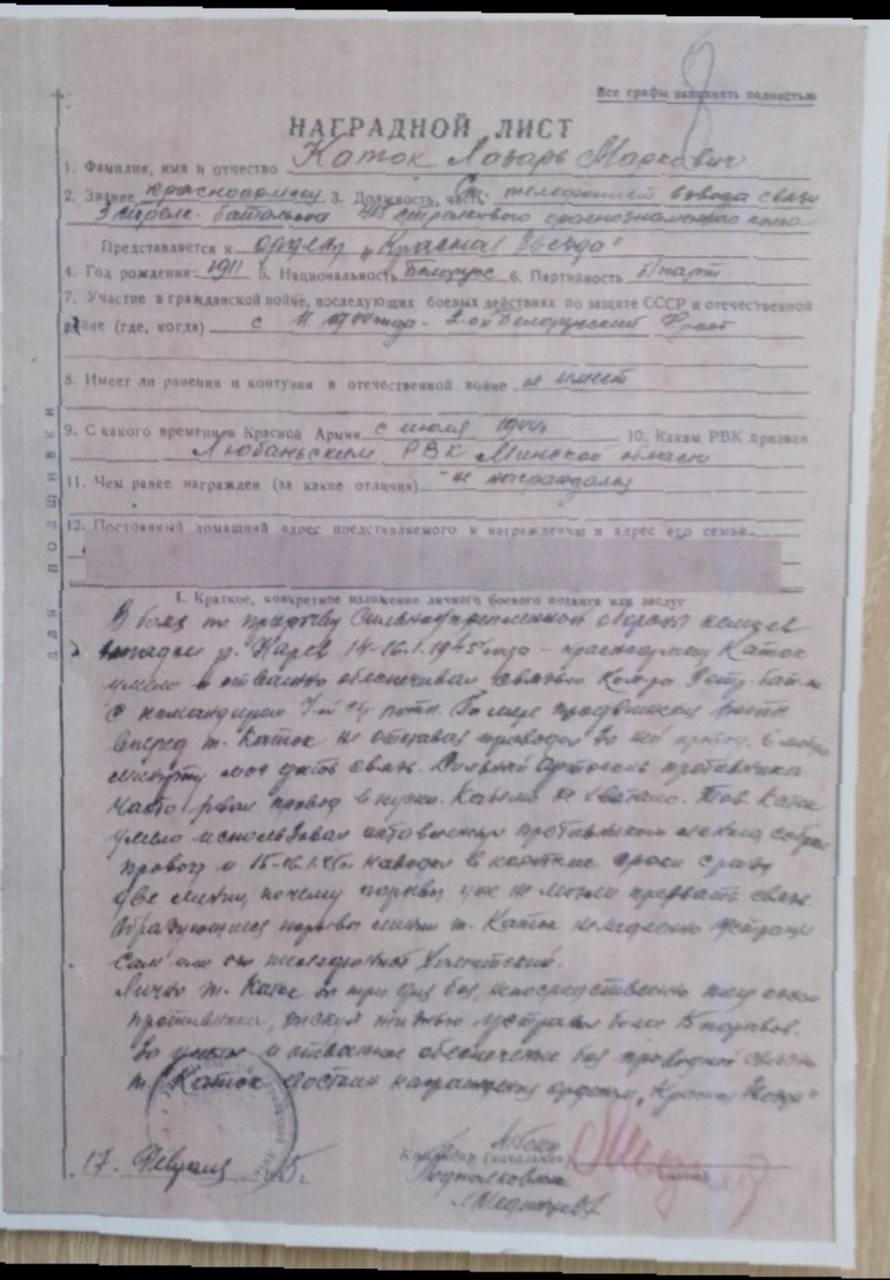 8
Все графы заполнять полностью
НАГРАДНОЙ ЛИСТ
1. Фамилия, имя и отчество Каток Лазарь Маркович
2. Звание красноармеец 3. Должность, часть Ст. телефонист взвода связи
3 стрелк. батальона стрелкового краснознаменного полка
Представляется к ордену „Красная Звезда"
4. Год рождения 1911 5. Национальность Белорус 6. Партийность б/парт
7. Участие в гражданской войне, последующих боевых действиях по защите СССР и отечественной
войне (где, когда) с 1944 года - 2-ой Белорусский Фронт
8. Имеет ли ранения и контузии в отечественной войне не имеет
9. С какого времени в Красной Армии с июля 1944г. 10. Каким РВК призван
Любаньским РВК Минской области
11. Чем ранее награжден (за какие отличия) не награждался
12. Постоянный домашний адрес представляемого к награждению и адрес его семьи
для подшивки
I. Краткое, конкретное изложение личного боевого подвига или заслуг
В боях по прорыву сильноукрепленной обороны немцев
западнее р. Нарев 14-16.1.1945 года - красноармеец Каток
умело и отважно обеспечивал связью
с командиром 7-ой стр. роты. По мере продвижения роты
вперед т. Каток не отставая проводил за ней провод. В любую
минуту мог дать связь. Сильный артогонь противника
часто рвал провод в куски. Кабеля не хватало. Тов. Каток
умело использовал оставленную противником собрал
провод и 15-16.1.45г. наводил в короткие сроки сразу
две линии, почему порывы уже не могли прервать связь.
Образующиеся порывы линии т. Каток немедленно устранял
сам или
Лично т. Каток за три дня боя, непосредственно под огнем
противника, рискуя жизнью устранил более 15 порывов.
За умелое и отважное обеспечение боя проводной связью
т. Каток достоин награждения орденом „Красная Звезда"
17. Февраля 45г.
Командир (начальник)
Подполковник